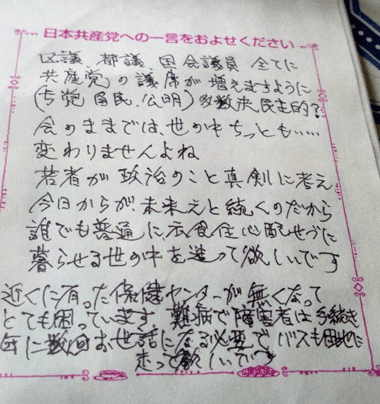 日本共産党への一言をおよせください
区議、都議、国会議員 全てに
共産党の議席が増えますように
国民、公明)多数決民主的?
今のままでは、世の中ちっとも……
変わりませんよね
若者が政治のこと真剣に考え
今日からが未来えと続くのだから
誰でも普通に、衣食住心配せずに
暮らせる世の中を造って欲しいです
近くに有った保健センターが無くなって
とても困っています 難病で障害者は手続き
年に数回お世話になる必要で バスも
走って欲しいです